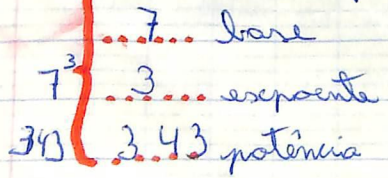 7 base
7³ 3 expoente
343 343 potência